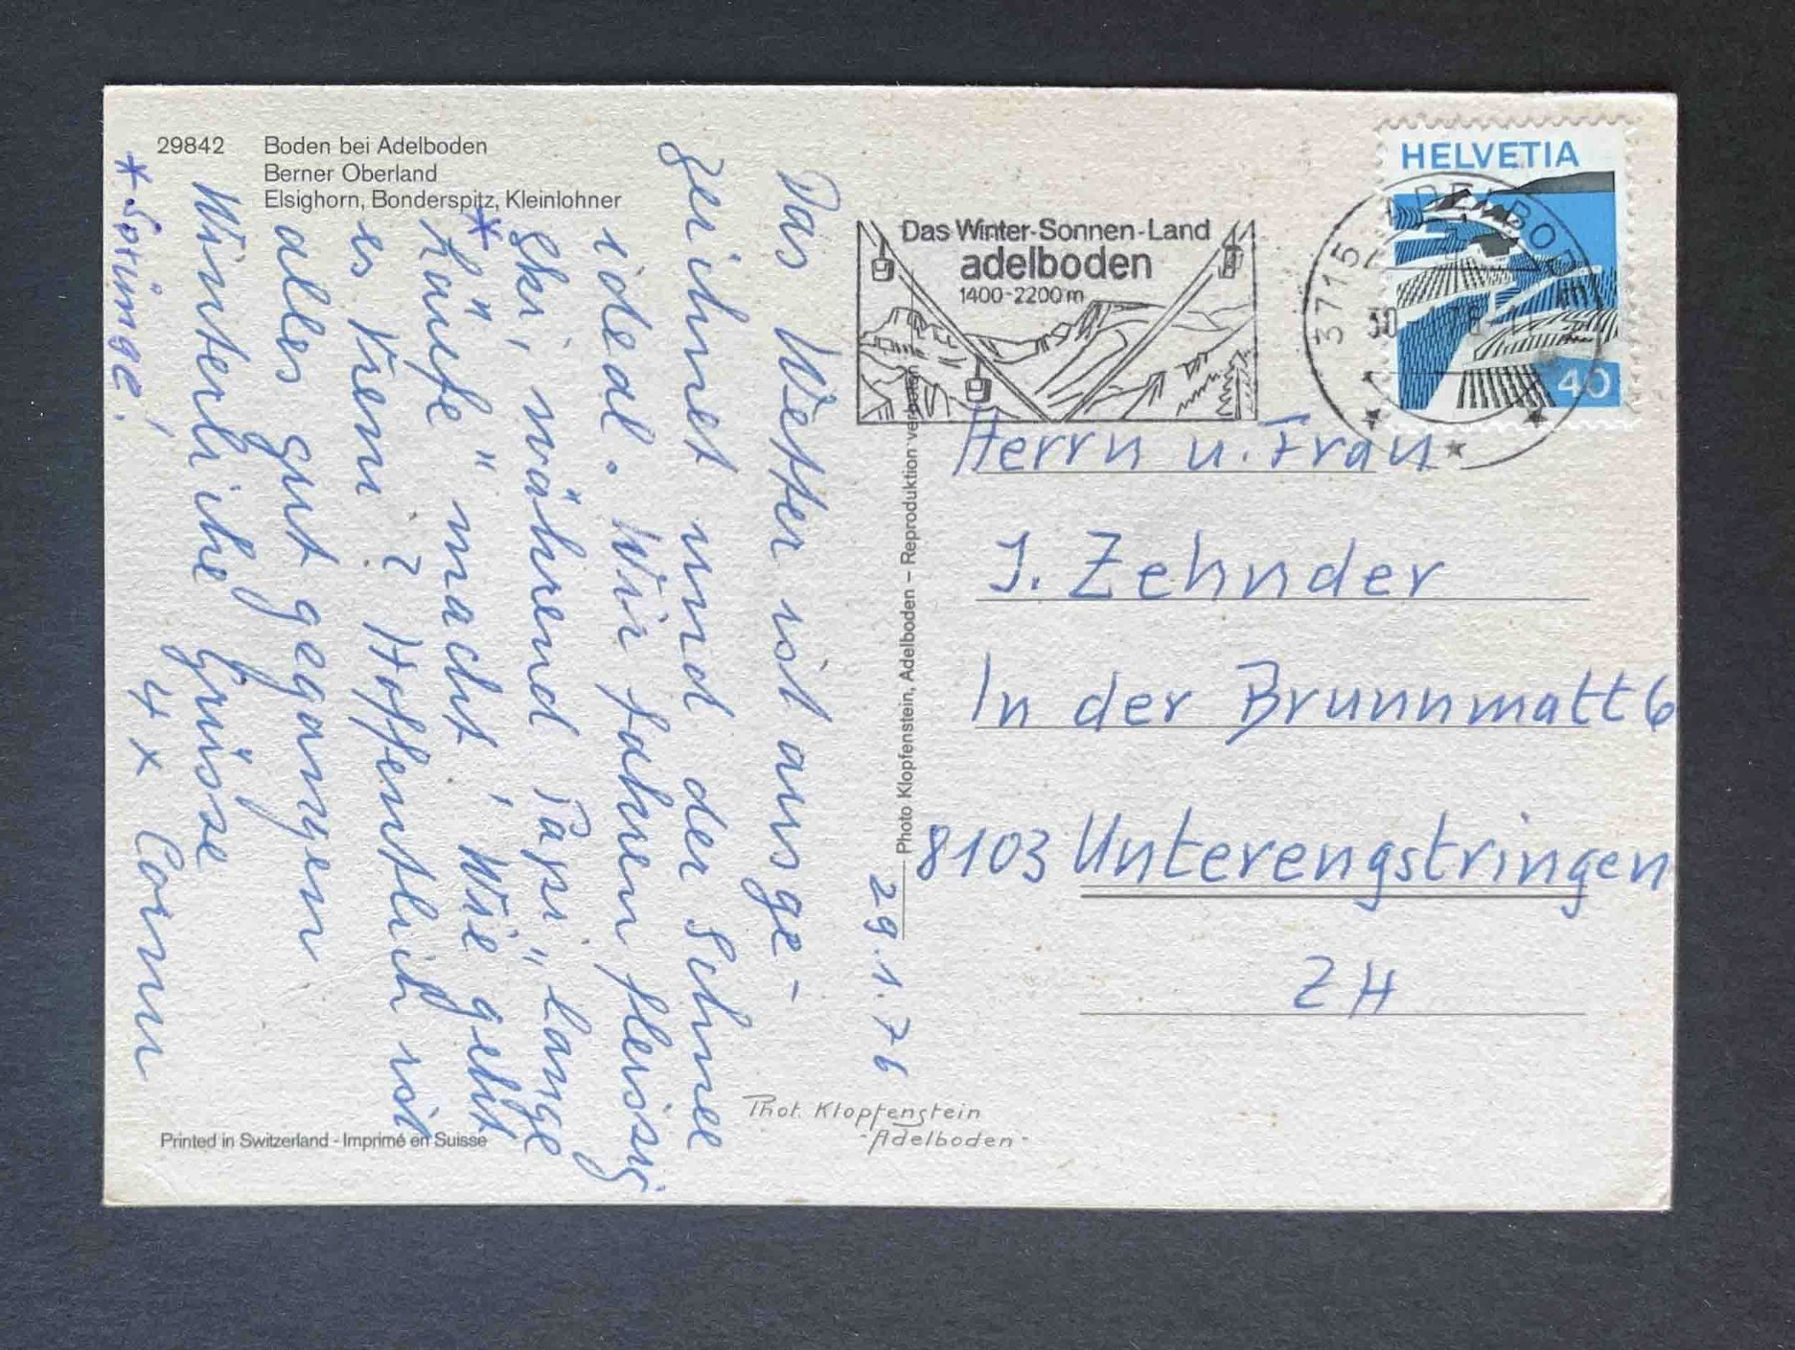 29842 Boden bei Adelboden
Berner Oberland
Elsighorn, Bonderspitz, Kleinlohner
29.1.76
Das Wetter ist ausge-
zeichnet und der Schnee
ideal. Wir fahren fleissig
Ski, während Papi „lange
*Läufe" macht! Wie geht
es Vreni? Hoffentlich ist
alles gut gegangen
Winterliche Grüsse
4 x
* Sprünge!
Printed in Switzerland - Imprimé en Suisse
Photo Klopfenstein, Adelboden – Reproduktion verboten
Phot. Klopfenstein
-Adelboden-
Das Winter-Sonnen-Land
adelboden
1400-2200m
HELVETIA
40
3715 ADELBODEN
30
Herrn u. Frau
J. Zehnder
In der Brunnmatt 6
8103 Unterengstringen
ZH